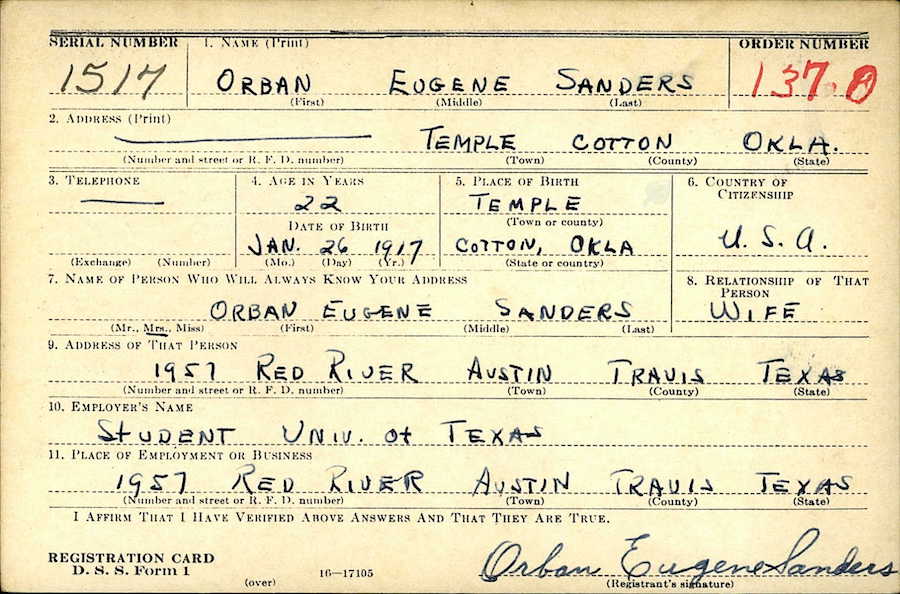 SERIAL NUMBER 1. NAME (Print) ORDER NUMBER
1517 ORBAN EUGENE SANDERS 137.0
(First) (Middle) (Last)
2. ADDRESS (Print)
TEMPLE COTTON OKLA.
(Number and street or R. F. D. number) (Town) (County) (State)
3. TELEPHONE 4. AGE IN YEARS 5. PLACE OF BIRTH 6. COUNTRY OF CITIZENSHIP
22 TEMPLE
DATE OF BIRTH (Town or county)
JAN. 26 1917 COTTON, OKLA U. S. A.
(Exchange) (Number) (Mo.) (Day) (Yr.) (State or country)
7. NAME OF PERSON WHO WILL ALWAYS KNOW YOUR ADDRESS 8. RELATIONSHIP OF THAT PERSON
ORBAN EUGENE SANDERS WIFE
(Mr., Mrs., Miss) (First) (Middle) (Last)
9. ADDRESS OF THAT PERSON
1957 RED RIVER AUSTIN TRAVIS TEXAS
(Number and street or R. F. D. number) (Town) (County) (State)
10. EMPLOYER'S NAME
STUDENT UNIV. of TEXAS
11. PLACE OF EMPLOYMENT OR BUSINESS
1957 RED RIVER AUSTIN TRAVIS TEXAS
(Number and street or R. F. D. number) (Town) (County) (State)
I AFFIRM THAT I HAVE VERIFIED ABOVE ANSWERS AND THAT THEY ARE TRUE.
REGISTRATION CARD
D. S. S. Form 1 Orban Eugene Sanders
(over) 16-17105 (Registrant's signature)